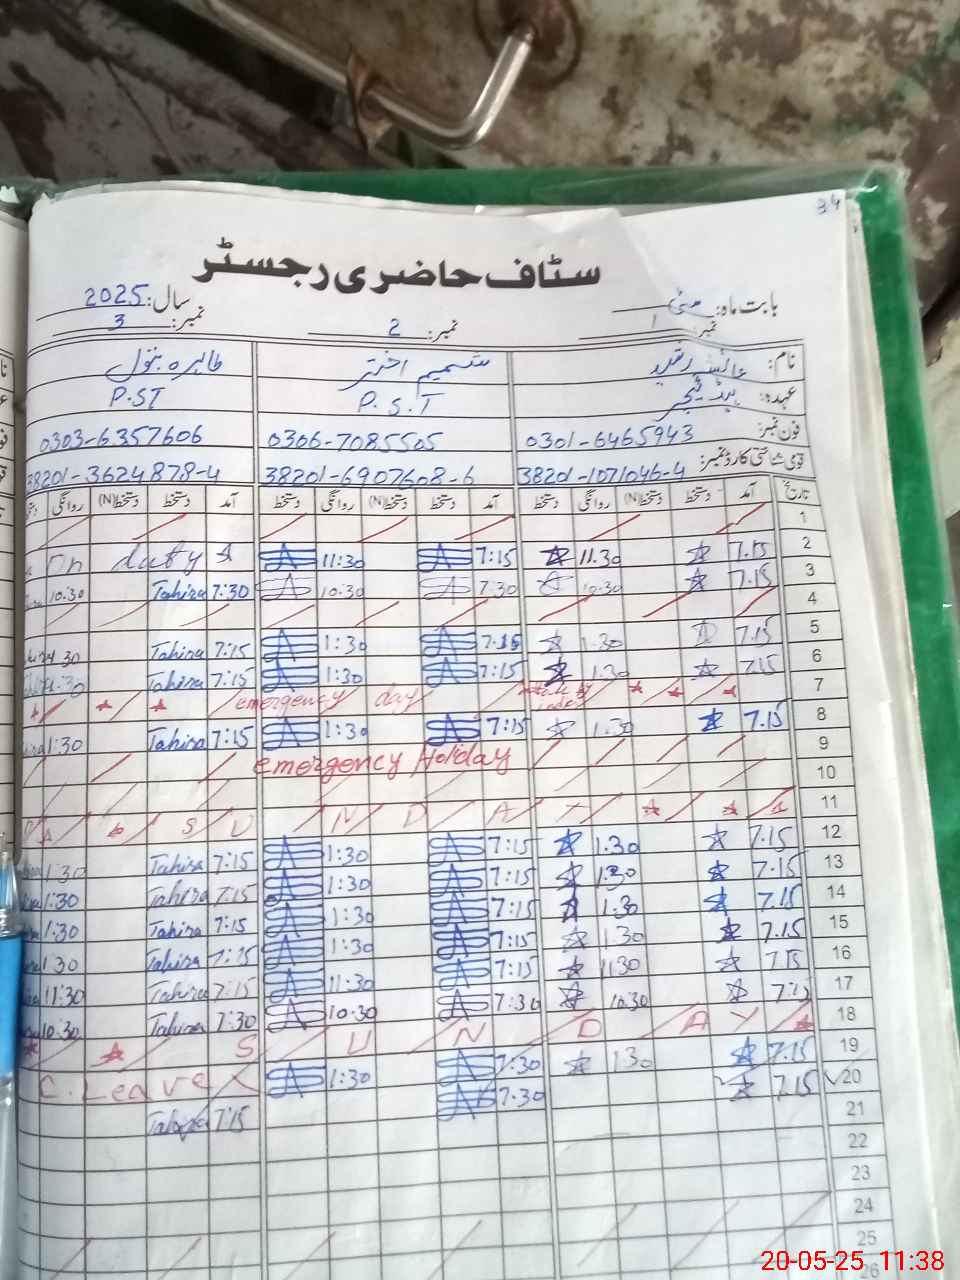 34
سٹاف حاضری رجسٹر
بابت ماہ: مئی سال: 2025
نمبر: 1 نمبر: 2 نمبر: 3
نام: عائشہ رشید شمیم اختر طاہرہ بتول
عہدہ: ہیڈ ٹیچر P.S.T P.ST
فون نمبر: 0301-6465943 0306-7085505 0303-6357606
قومی شناختی کارڈ نمبر: 38201-1071046-4 38201-6907608-6 38201-3624878-4
تاریخ آمد دستخط دستخط(N) روانگی دستخط آمد دستخط دستخط(N) روانگی دستخط آمد دستخط دستخط(N) روانگی
1
2 7.15 11.30 7:15 11:30 On duty
3 7.15 10.30 7:30 10.30 7:30 Tahira 10.30
4
5 7.15 1.30 7.15 1:30 7:15 Tahira 1.30
6 7.15 1.30 7:15 1:30 7:15 Tahira 1.30
7 emergency day
8 7.15 1.30 7:15 1:30 7:15 Tahira 1:30
9 emergency Holiday
10
11 S U N D A Y
12 7.15 1.30 7:15 1:30 7:15 Tahira 1.30
13 7.15 1:30 7:15 1:30 7.15 Tahira 1:30
14 7.15 1.30 7:15 1:30 7:15 Tahira 1:30
15 7.15 1.30 7:15 1:30 7:15 Tahira 1.30
16 7.15 1.30 7:15 11:30 7:15 Tahira 11.30
17 7.15 10.30 7:30 10:30 7:30 Tahira 10.30
18 S U N D A Y
19 7.15 1.30 7.30 1:30 C. Leave
20 7.15 7.30 7:15 Tahira
21
22
23
24
25
26
20-05-25 11:38